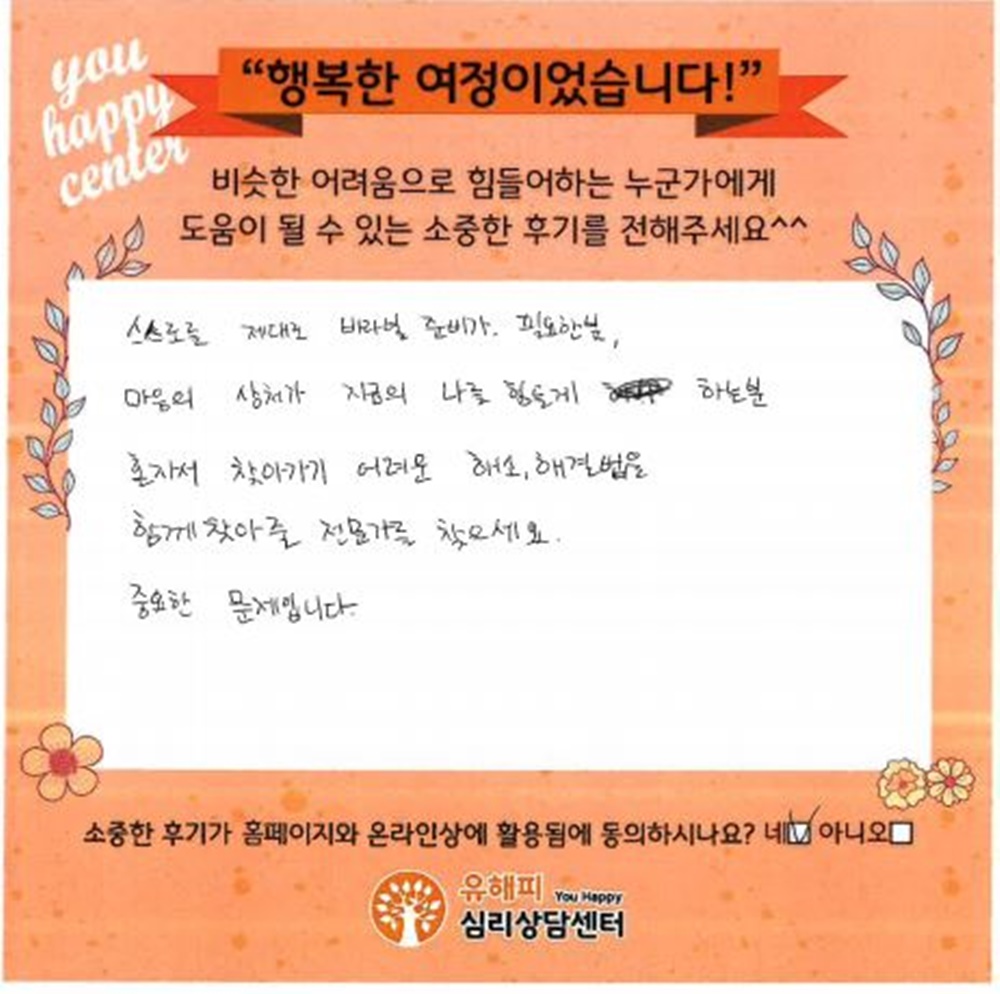 you
happy
center
“행복한 여정이었습니다!”
비슷한 어려움으로 힘들어하는 누군가에게
도움이 될 수 있는 소중한 후기를 전해주세요^^
스스로를 제대로 바라볼 준비가. 필요한분,
마음의 상처가 지금의 나를 힘들게 하는분
혼자서 찾아가기 어려운 해소, 해결법을
함께 찾아줄 전문가를 찾으세요.
중요한 문제입니다.
소중한 후기가 홈페이지와 온라인상에 활용됨에 동의하시나요? 네☑ 아니오☐
유해피 You Happy
심리상담센터